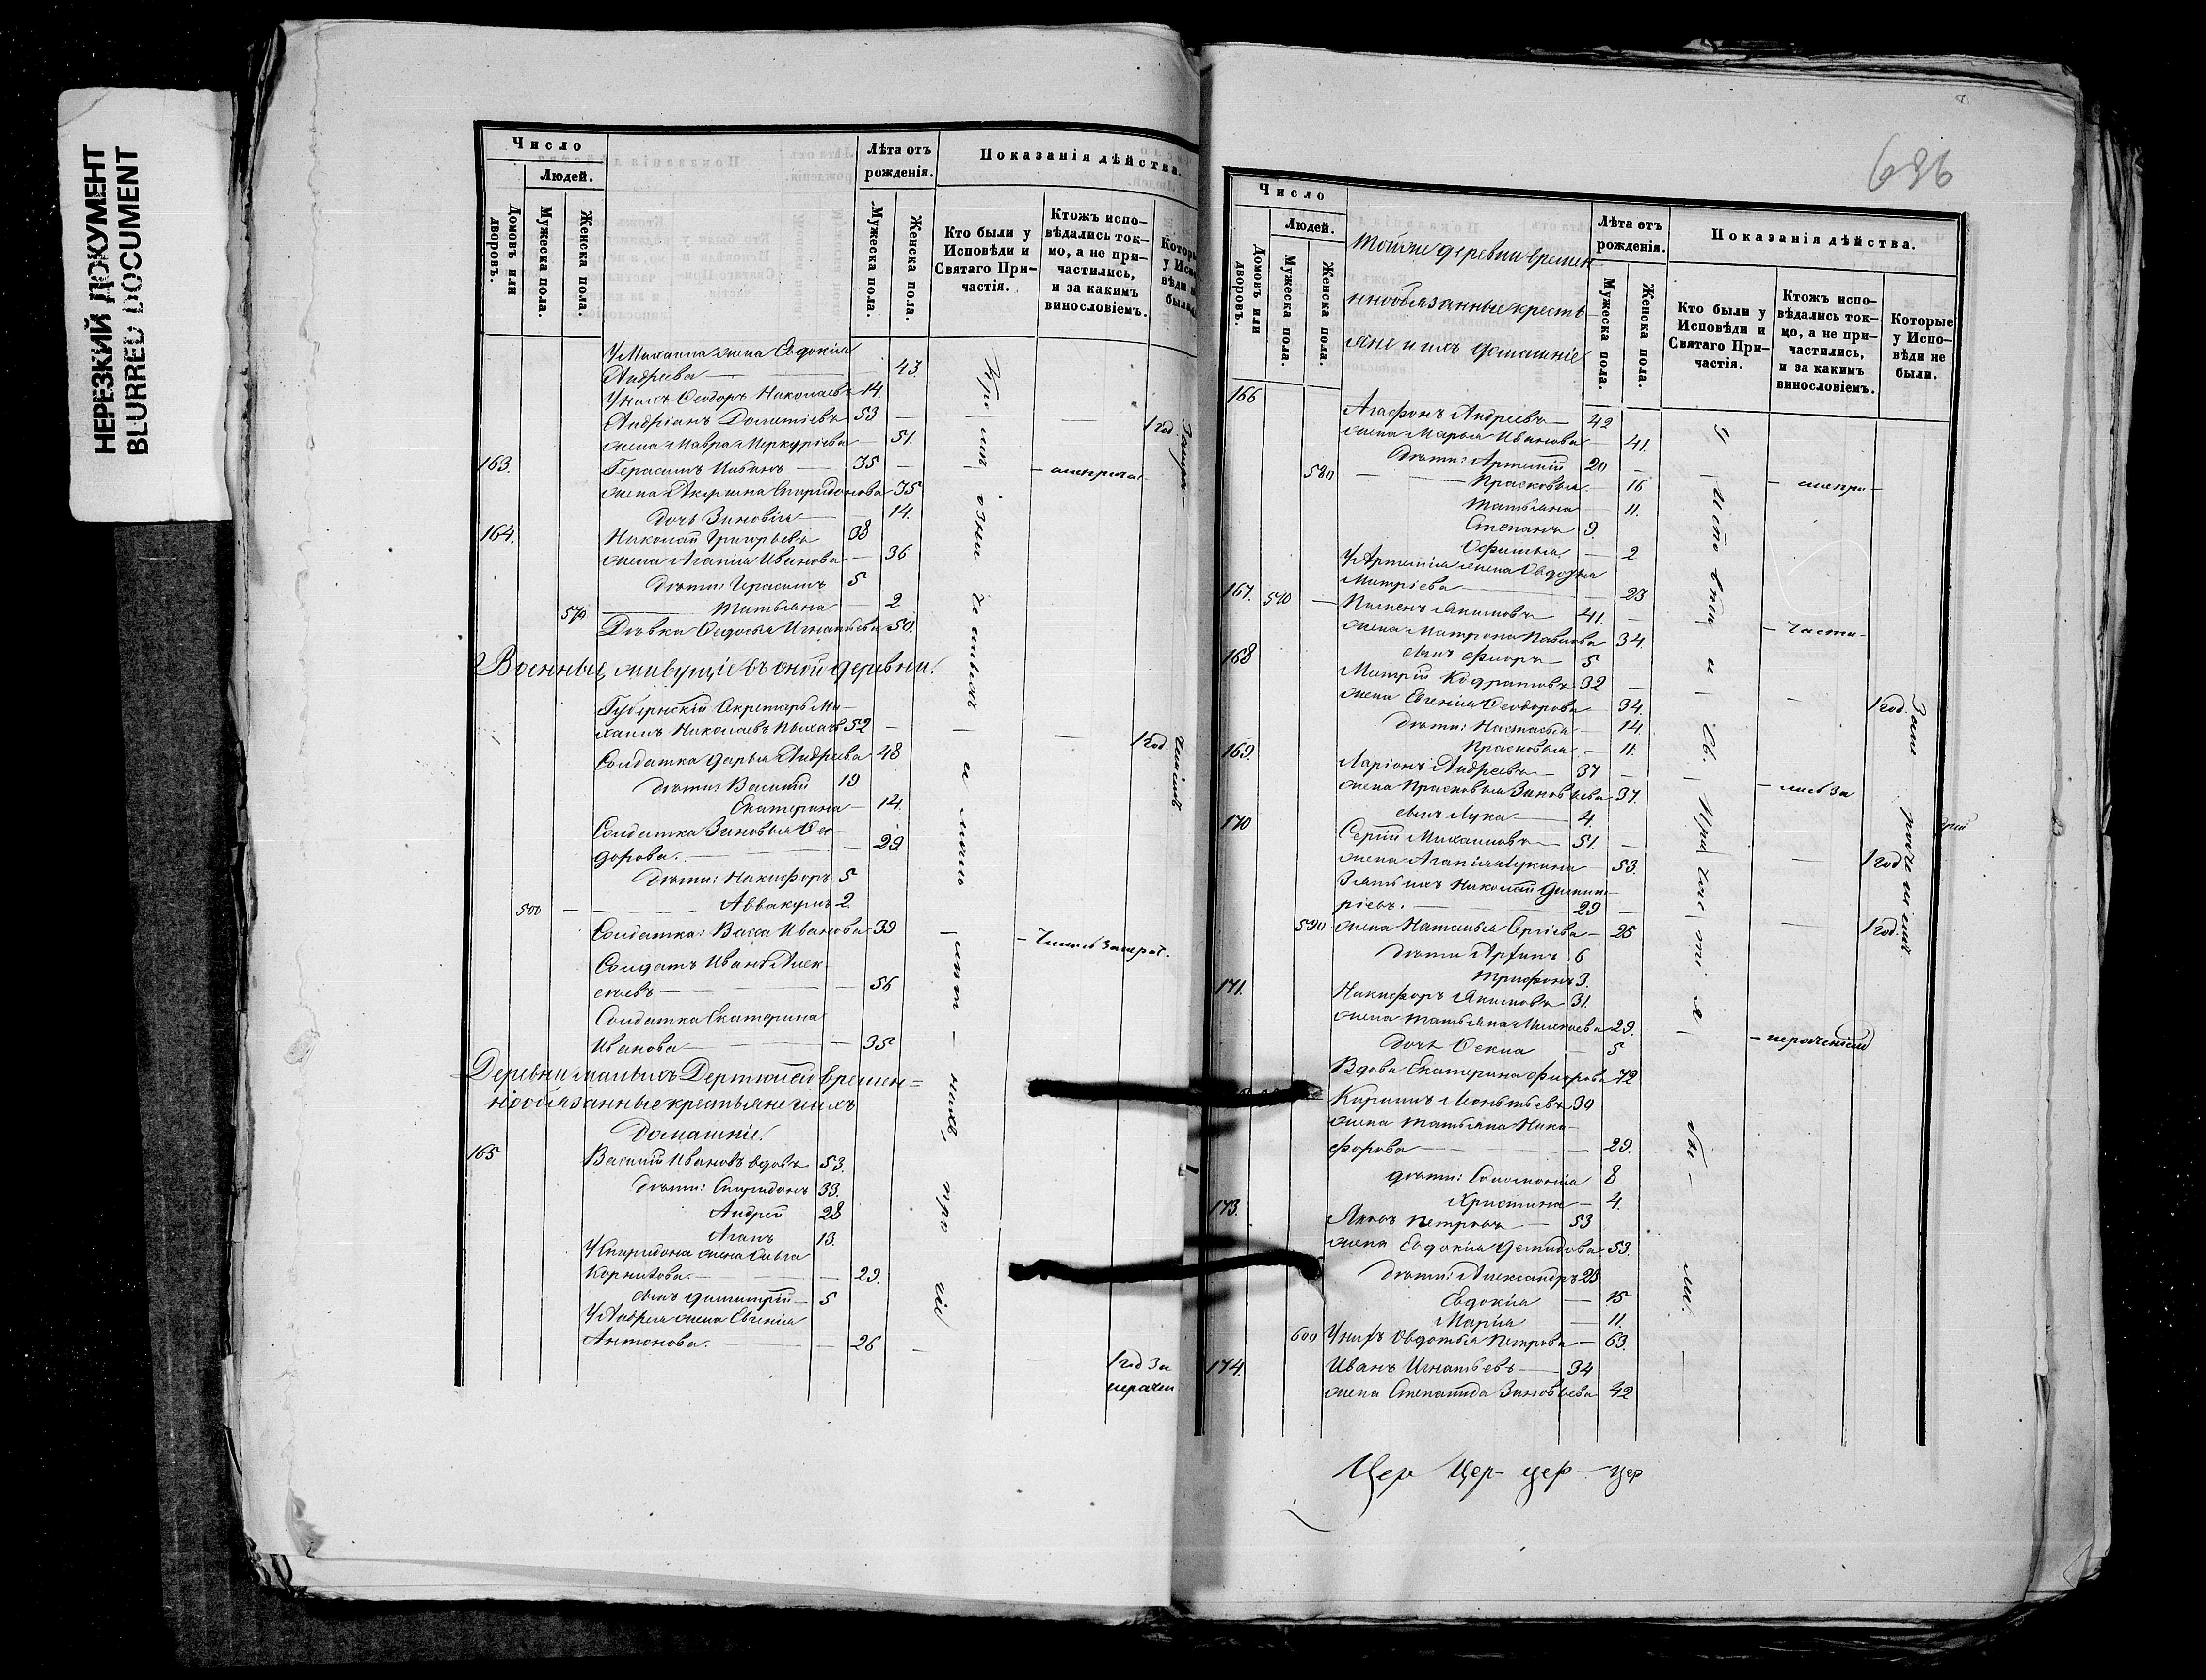 НЕРЕЗКИЙ ДОКУМЕНТ
BLURRED DOCUMENT
Число
Людей.
Домовъ или дворовъ.
Мужеска пола.
Женска пола.
Лѣта отъ рожденія.
Мужеска пола.
Женска пола.
Показанія дѣйства.
Кто были у Исповѣди и Святаго При-
частія.
Ктожъ испо-
вѣдались ток-
мо, а не при-
частились,
и за какимъ
винословіемъ.
У Михаила жена Евдокія
Андреева 43.
У нихъ Ѳеодоръ Николаевъ 14.
Андріанъ Дометіевъ 53 1 год.
жена Мавра Меркуріева 51.
163. Герасимъ 35
жена Акулина Спиридонова 35
дочь Зиновія 14.
164. Николай Григорьевъ 38
жена Агапія Иванова 36
дѣти: Герасимъ 5
570 Татьяна 2
Дѣвка Ѳедосья Игнатьева 50.
Военные, живущіе въ оной деревни.
Губернскій Секретарь Ми-
хаилъ Николаевъ 52 1 год.
Солдатка Дарья Андреева 48
дѣти: Василій 19
Екатерина 14.
Солдатка Зиновья Ѳео-
дорова. 29
дѣти: Никифоръ 5
Аввакумъ 2.
Солдатка: Васса Иванова 39
Солдатъ Иванъ Алек-
сѣевъ 56
Солдатка Екатерина
Иванова 35
Деревни малыхъ Дертюлей времен-
нообязанные крестьяне и ихъ
Домашніе.
165 Василій Ивановъ вдовъ 53.
дѣти: Спиридонъ 33.
Андрей 28
Агапъ 13.
У Спиридона жена Ольга
Корнилова. 29.
сынъ Димитрій 5
У Андрея жена Евгенія
Антонова. 26
1 год за
нерачен
636
Число
Людей.
Домовъ или дворовъ.
Мужеска пола.
Женска пола.
Той же деревни времен-
нообязанные кресть-
яне и ихъ домашніе
Лѣта отъ рожденія.
Мужеска пола.
Женска пола.
Показанія дѣйства.
Кто были у Исповѣди и Святаго При-
частія.
Ктожъ испо-
вѣдались ток-
мо, а не при-
частились,
и за какимъ
винословіемъ.
Которые у Испо-
вѣди не были.
166
Агафонъ Андреевъ 42
жена Марья Иванова 41.
дѣти: Артемій 20
580 Прасковья 16
Татьяна 11.
Степанъ 9.
Офимья 2
У Артемія жена Овдотья
Митріева 23
167. 510 Пименъ Якимовъ 41.
жена Матрона Павлова 34.
сынъ Флоръ 5
168 Митрій Кодратовъ 32
жена Евгенія Ѳеодорова 34. 1 год.
дѣти: Настасья 14.
Прасковья 11.
169. Ларіонъ Андреевъ 37
жена Прасковья Зиновьева 37.
сынъ Лука 4.
170 Сергій Михаиловъ 51.
жена Агапія Лукина 53. 1 год
Зять ихъ Николай Димит-
ріевъ. 29
590 жена Наталья Сергіева 25 1 год.
дѣти 6
Трифонъ 3.
171. Никифоръ Якимовъ 31.
жена Татьяна 29.
дочь Ѳекла 5
Вдова Екатерина Флорова 72
Кирилъ Леонтьевъ 30
жена Татьяна Ники-
форова 29.
дѣти: Соломонія 8
Христина 4.
173. Яковъ Петровъ 53
жена Евдокія Демидова 53.
дѣти: Александръ 23
Евдокія 15
Марія 11.
600 У нихъ Овдотья Петрова 63.
174. Иванъ Игнатьевъ 34
жена Степанида Зиновьева 42
Цер Цер- цер- цер